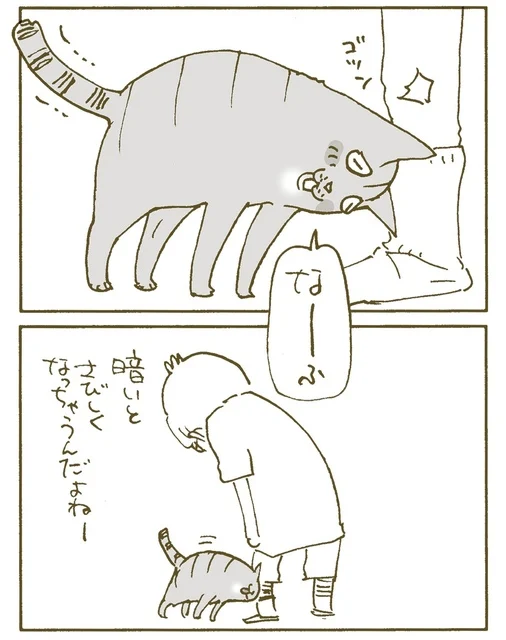 ゴツン
なーふ
暗いと
さびしく
なっちゃうんだよねー